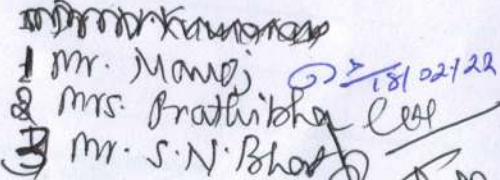 1 Mr. Manoj 18/02/22
2 Mrs. Prathibha
3 Mr. S.N. Bhat